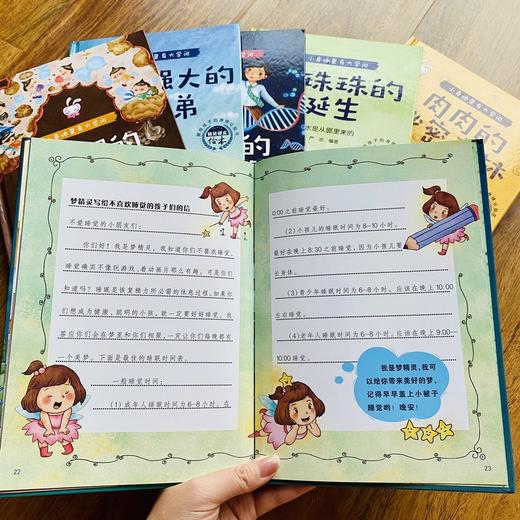 小身体里有大学问
小身体里有大学问
强大的
弟
精装硬壳
绘本
的
小身体里有大学问
珠珠的
诞生
小身体里有大学问
肉肉的
梦精灵写给不喜欢睡觉的孩子们的信
不爱睡觉的小朋友们：
你们好！我是梦精灵，我知道你们不喜欢睡觉，
睡觉确实不像玩游戏、看动画片那么有趣。可是你们
知道吗？睡眠是恢复精力所必需的休息过程。如果你
们想成为健康、聪明的小孩，就一定要好好睡觉。我
答应你们会在梦里和你们相聚，一定让你们每晚都有
一个美梦。下面是最佳的睡眠时间表。
一般睡觉时间：
（1）成年人睡眠时间为6~8小时。在
22
0:00之前睡觉最好。
（2）小孩儿的睡眠时间为8~10小时。
最好在晚上8:30之前睡觉，因为小孩儿要
长身体。
（3）青少年睡眠时间为6~8小时。应该在晚上10:00
左右睡觉。
（4）老年人睡眠时间为6~8小时。应该在晚上9:00~
10:00睡觉。
我是梦精灵，我可
以给你带来美好的梦，
记得早早盖上小被子
睡觉哟！晚安！
23